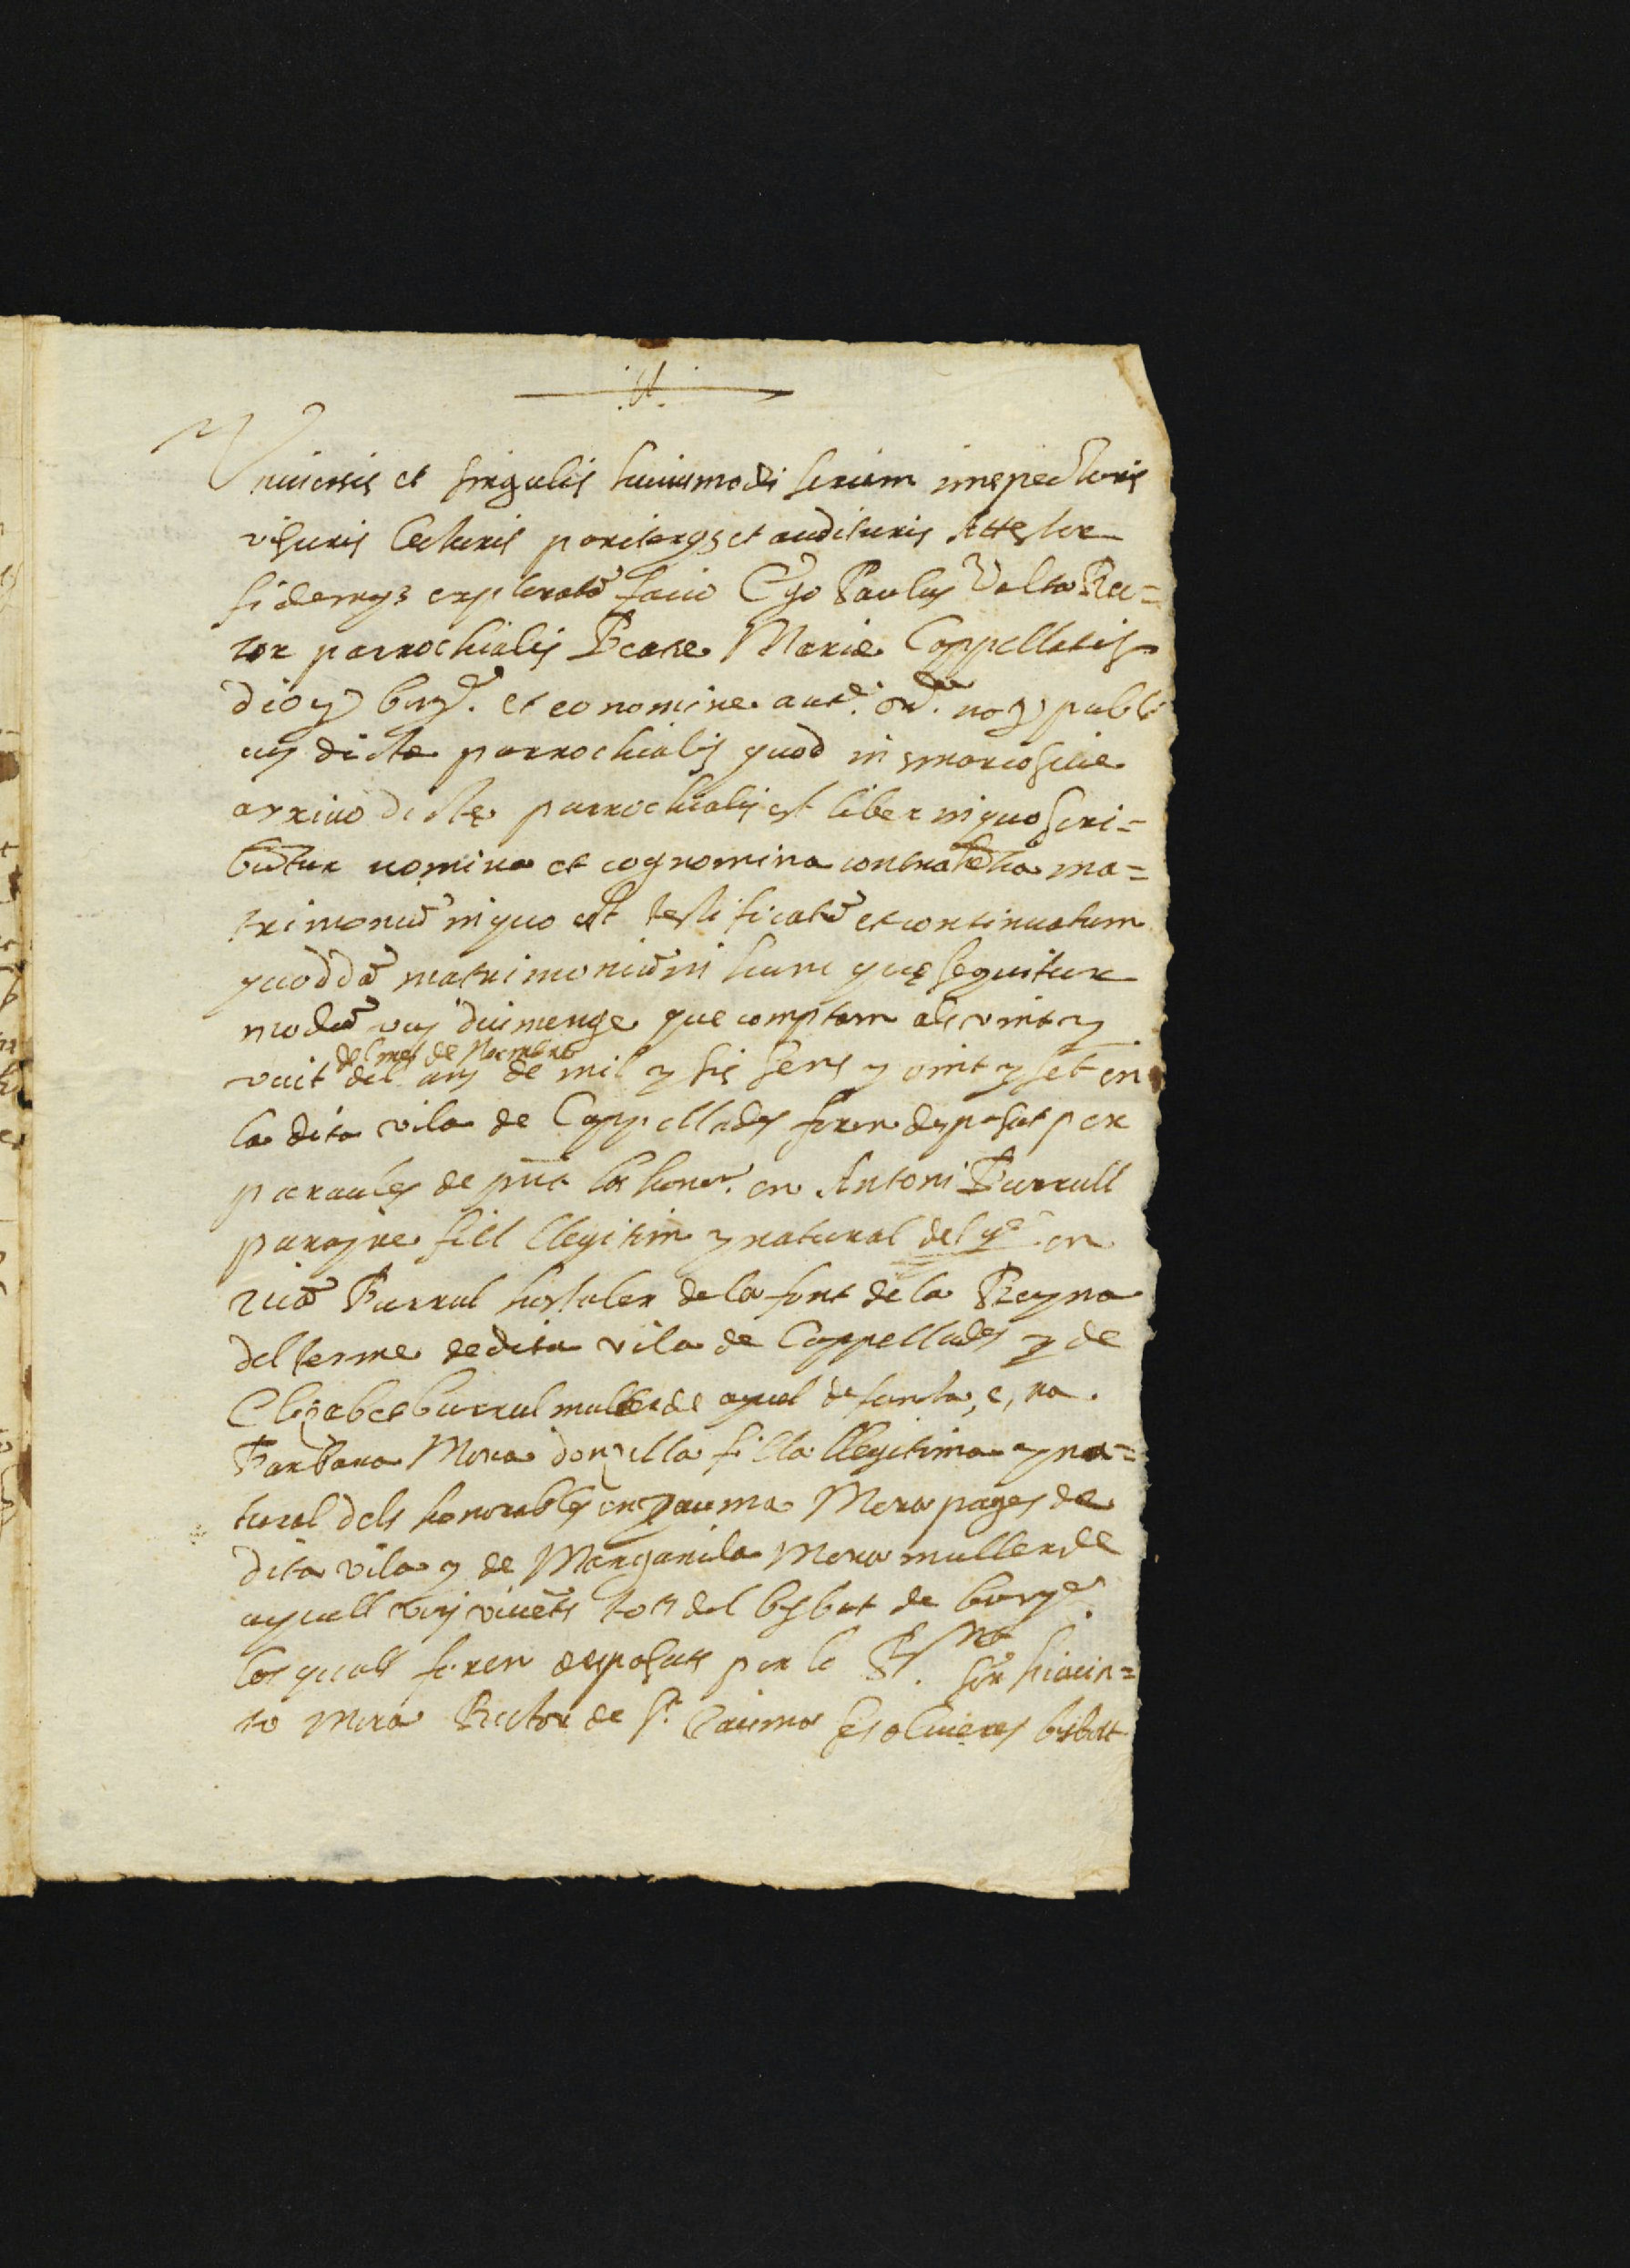 Universis et singulis huiusmodi seriem inspecturis
visuris lecturis pariterq3 et audituris Attestor
fidemq3 exploratã facio Ego Paulus Volta Rec=
tor parrochialis Beate Marie Cappellatis
dioy barñ. et eo nomine autẽ. ordr̃. noỹ publi
cus dicte parrochialis quod in
arxivo dicte parrochialis est liber in quo scri=
bũtur nomina et cognomina contrahẽtia ma=
trimoniũ in quo est testificatũ et continuatum
quoddã matrimoniũ in hunc quę sequitur
modũ vuy diumenge que comptam als vint y
vuit del mes de Noembre del any de mil y sis sens y vint y set en
la dita vila de Cappellades foren desposat per
paraules de pñt los honor. en Antoni Burrull
parayre fill llegitim y natural del qº. en
Burrul hostaler de la font de la Reyna
del terme de dita vila de Cappellades y de
Elizabet burrul muller de aquel defunta, e, na.
Barbara Mora donzella filla llegitima y na=
tural dels honorables en Jauma Mora pages de
dita vila y de Margarida Mora muller de
aquell vuy vivẽts tots del bisbat de barñᵃ.
los quals foren desposats per lo Rᵗ. Sor hiacin=
to Mora Rector de St. Jaume ses oliueres bisbat